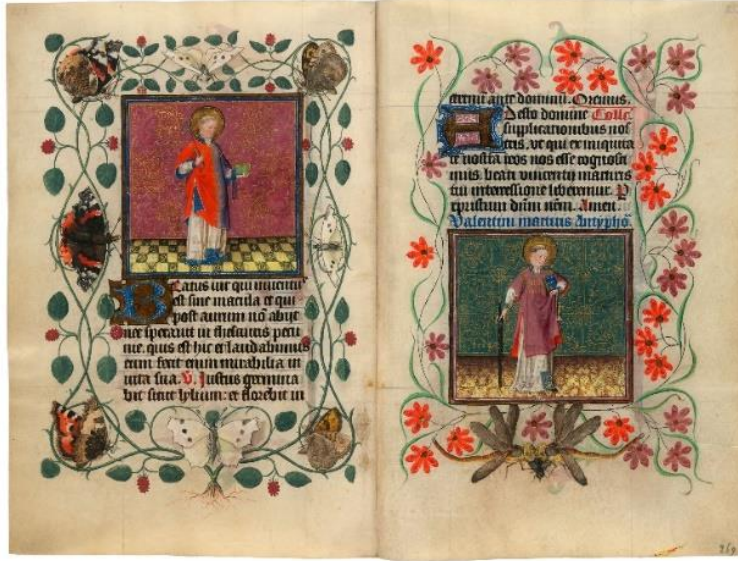 Beatus vir qui inventus
est sine macula et qui
post aurum nō abijt
nec speravit in thesauris pecu
nie. quis est hic et laudabimus
eum fecit enim mirabilia in
vita sua. V. Justus germina
bit sicut lylium: et florebit in
eternū ante dominū. Oremus.
Adesto domine Colle.
supplicationibus nos
tris. vt qui ex iniquita
te nostra reos nos esse cognosci
mus. beati vincentij martiris
tui intercessione liberemur. P
cristum dūm nrm. Amen.
Valentini martiris Antypho.
269